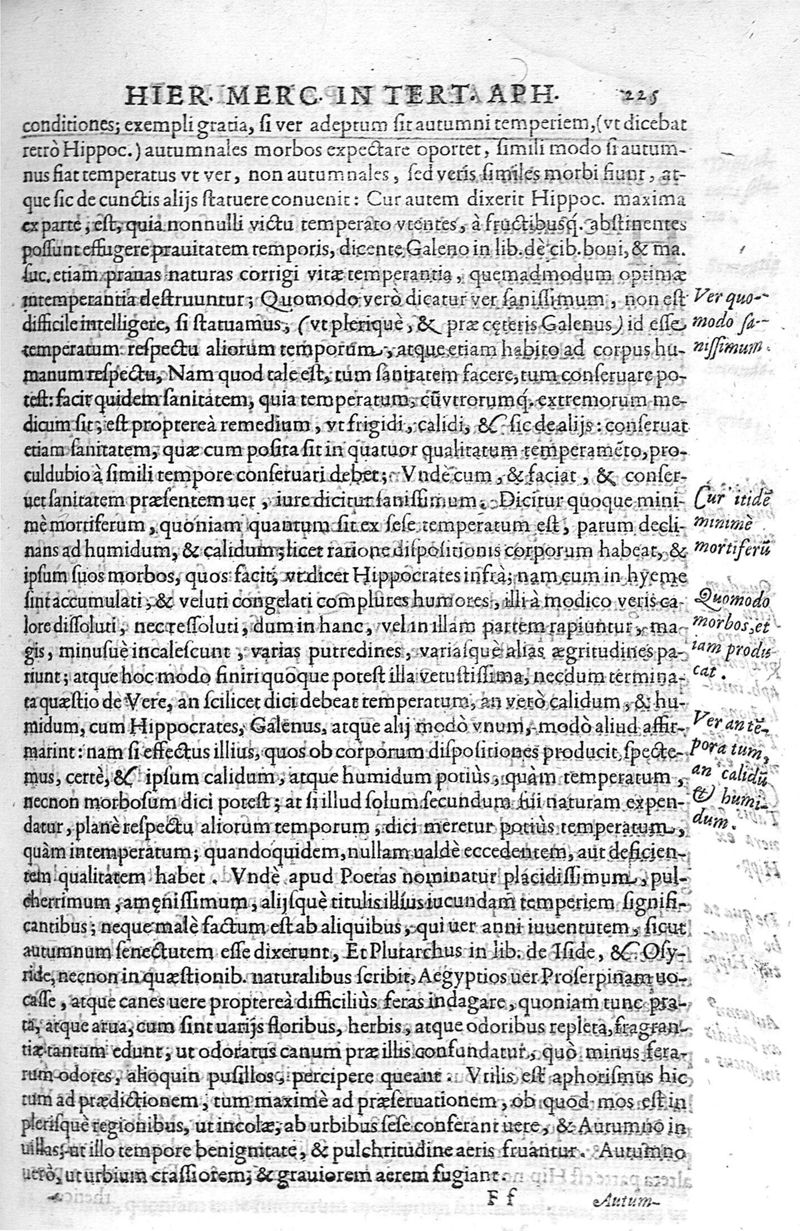 HIER. MERC. IN TERT. APH. 225
conditiones; exempli gratia, si ver adeptum sit autumni temperiem, (vt dicebat
retrò Hippoc.) autumnales morbos expectare oportet, simili modo si autum-
nus fiat temperatus vt ver, non autumnales, sed veris similes morbi fiunt, at-
que sic de cunctis alijs statuere conuenit: Cur autem dixerit Hippoc. maxima
ex parte, est, quia nonnulli victu temperato vtentes, à fructibusq́. abstinentes
possunt effugere prauitatem temporis, dicente Galeno in lib. dè cib. boni, & ma.
suc. etiam prauas naturas corrigi vitæ temperantia, quemadmodum optimæ
intemperantia destruuntur; Quomodo verò dicatur ver sanissimum, non est
difficile intelligere, si statuamus, (vt pleriquè, & præ cęteris Galenus) id esse
temperatum respectu aliorum temporum, atque etiam habito ad corpus hu-
manum respectu, Nam quod tale est, tùm sanitatem facere, tum conseruare po-
test: facit quidem sanitatem, quia temperatum, cũ vtrorumq́. extremorum me-
dicum sit; est proptereà remedium, vt frigidi, calidi, & sic de alijs: conseruat
etiam sanitatem, quæ cum posita sit in quatuor qualitatum temperamẽto, pro-
culdubio à simili tempore conseruari debet; Vndè cum, & faciat, & conser-
uet sanitatem præsentem uer, iure dicitur sanissimum. Dicitur quoque mini-
mè mortiferum, quoniam quantum sit ex sese temperatum est, parum decli-
nans ad humidum, & calidum; licet ratione dispositionis corporum habeat, &
ipsum suos morbos, quos facit, vt dicet Hippocrates infrà; nam cum in hyeme
sint accumulati, & veluti congelati complures humores, illi à modico veris ca-
lore dissoluti, nec ressoluti, dum in hanc, vel in illam partem rapiuntur, ma-
gis, minusuè incalescunt, varias putredines, variasque alias ægritudines pa-
riunt; atque hoc modo finiri quoque potest illa vetustissima, necdum termina-
ta quæstio de Vere, an scilicet dici debeat temperatum, an verò calidum, & hu-
midum, cum Hippocrates, Galenus, atque alij modò vnum, modò aliud affir-
marint: nam si effectus illius, quos ob corporum dispositiones producit, specte-
mus, certè, & ipsum calidum, atque humidum potiùs, quàm temperatum,
necnon morbosum dici potest; at si illud solum secundum sui naturam expen-
datur, planè respectu aliorum temporum, dici meretur potiùs temperatum,
quàm intemperatum; quandoquidem, nullam ualdè eccedentem, aut deficien-
tem qualitatem habet. Vndè apud Poetas nominatur placidissimum, pul-
cherrimum, amęnissimum, alijsque titulis illius iucundam temperiem signifi-
cantibus; neque malè factum est ab aliquibus, qui uer anni iuuentutem, sicut
autumnum senectutem esse dixerunt, Et Plutarchus in lib. de Iside, & Osy-
ride, necnon in quæstionib. naturalibus scribit, Aegyptios uer Proserpinam uo-
casse, atque canes uere proptereà difficiliùs feras indagare, quoniam tunc pra-
ta, atque arua, cum sint uarijs floribus, herbis, atque odoribus repleta, fragran-
tiæ tantum edunt, ut odoratus canum præ illis confundatur, quò minus fera-
rum odores, alioquin pusillos, percipere queant. Vtilis est aphorismus hic
tum ad prædictionem, tum maximè ad præseruationem, ob quod mos est in
plerisquè regionibus, ut incolæ, ab urbibus sese conferant uere, & Autumno in
uillas, ut illo tempore benignitate, & pulchritudine aeris fruantur. Autumno
uerò, ut urbium crassiorem, & grauiorem aerem fugiant.
F f Autum-
Ver quo-
modo sa-
nissimum.
Cur itidẽ
minimè
mortiferũ
Quomodo
morbos, et
iam produ
cat.
Ver an tẽ-
poratum,
an calidũ
& humi-
dum.